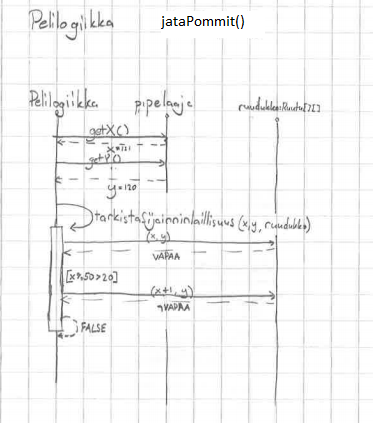 Pelilogiikka
jataPommit()
Pelilogiikka
pipelaaja
ruudukko:Ruutu[][]
getX()
x=111
getY()
y=120
tarkistaSijainninlaillisuus (x,y, ruudukko)
(x,y)
VAPAA
[x%50>20]
(x+1, y)
¬VAPAA
FALSE